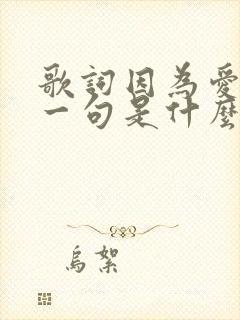 歌詞因為愛
一句是什麼
烏絮